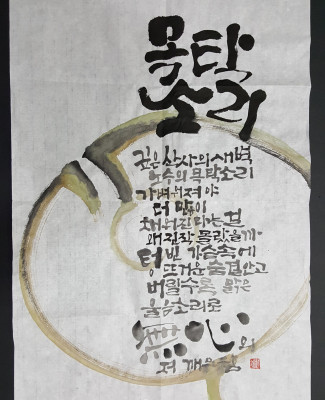 목탁
소리
깊은 산사의 새벽
노승의 목탁소리
가벼워져야
더 많이
채워진다는 걸
왜 진작 몰랐을까
텅 빈 가슴속에
뜨거운 숨결안고
버릴수록 맑은
울음소리로
無心의
저 깨우침